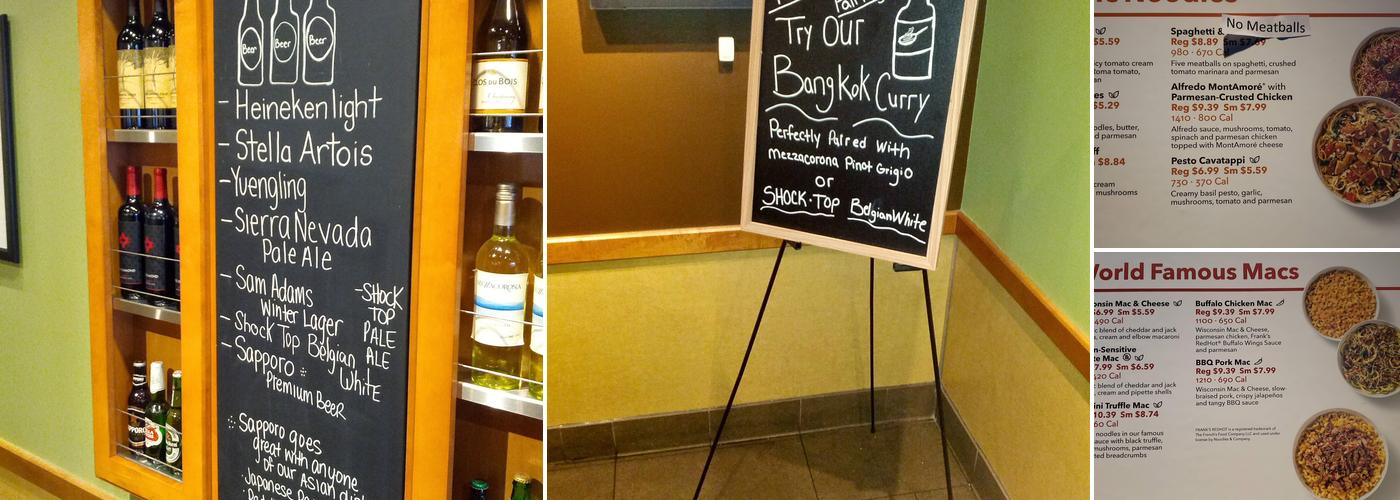 Beer
Beer
Beer
- Heineken light
- Stella Artois
- Yuengling
- Sierra Nevada
Pale Ale
- Sam Adams
Winter Lager
- Shock Top Belgian
White
- Sapporo
Premium Beer
- SHOCK
TOP
PALE
ALE
Sapporo goes
great with anyone
of our Asian
Japanese
CLOS DU BOIS
Try Our
Bangkok Curry
Perfectly Paired With
mezzacorona Pinot Grigio
or
SHOCK-TOP BelgianWhite
No Meatballs
$5.59
Spaghetti &
Reg $8.89
980 - 670
Five meatballs on spaghetti, crushed
tomato marinara and parmesan
icy tomato cream
toma tomato,
Alfredo MontAmoré® with
Parmesan-Crusted Chicken
Reg $9.39 Sm $7.99
1410 - 800 Cal
Alfredo sauce, mushrooms, tomato,
spinach and parmesan chicken
topped with MontAmoré cheese
$5.29
oodles, butter,
d parmesan
$8.84
cream
mushrooms
Pesto Cavatappi
Reg $6.99 Sm $5.59
730 - 370 Cal
Creamy basil pesto, garlic,
mushrooms, tomato and parmesan
World Famous Macs
onsin Mac & Cheese
$6.99 Sm $5.59
490 Cal
c blend of cheddar and jack
, cream and elbow macaroni
n-Sensitive
te Mac
7.99 Sm $6.59
420 Cal
c blend of cheddar and jack
, cream and pipette shells
ini Truffle Mac
10.39 Sm $8.74
60 Cal
noodles in our famous
sauce with black truffle,
mushrooms, parmesan
ted breadcrumbs
Buffalo Chicken Mac
Reg $9.39 Sm $7.99
1100 - 650 Cal
Wisconsin Mac & Cheese,
parmesan chicken, Frank's
RedHot® Buffalo Wings Sauce
and parmesan
BBQ Pork Mac
Reg $9.39 Sm $7.99
1210 - 690 Cal
Wisconsin Mac & Cheese, slow-
braised pork, crispy jalapeños
and tangy BBQ sauce
FRANK'S REDHOT is a registered trademark of
The French's Food Company LLC and used under
license by Noodles & Company.